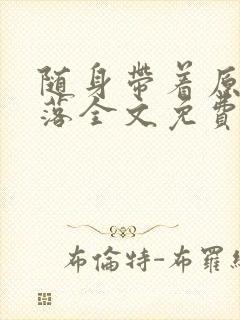 随身帶着原
落全文免費
布倫特-布羅